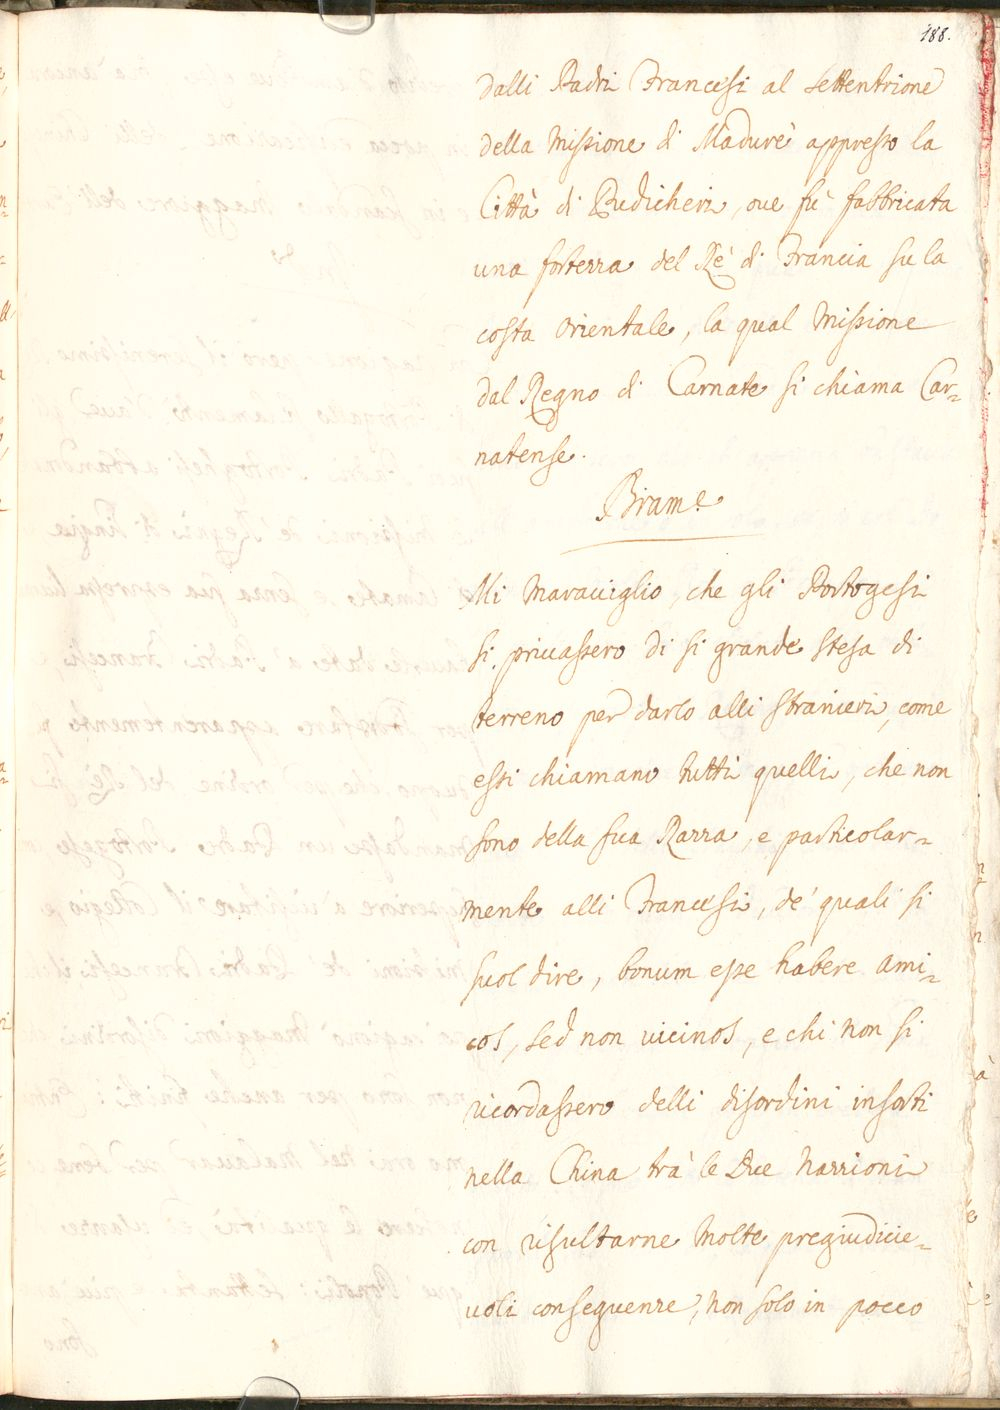 188.
dalli Padri Francesi al settentrione
della Missione di Madurè appresso la
Città di Pudicheri, oue fù fabbricata
una fortezza del Rè di Francia su la
costa orientale, la qual Missione
dal Regno di Carnate si chiama Car=
natense.
Bram.e
Mi maraviglio, che gli Portogesi
si privassero di si grande stesa di
terreno per darlo alli stranieri, come
essi chiamano tutti quelli, che non
sono della sua Razza, e particolar=
mente alli Francesi, de' quali si
suol dire, bonum esse habere ami=
cos, sed non vicinos, e chi non si
ricordassero delli disordini insorti
nella China trà le Due Nazzioni
con risultarne molte pregiudicie=
uoli conseguenze, non solo in pocco